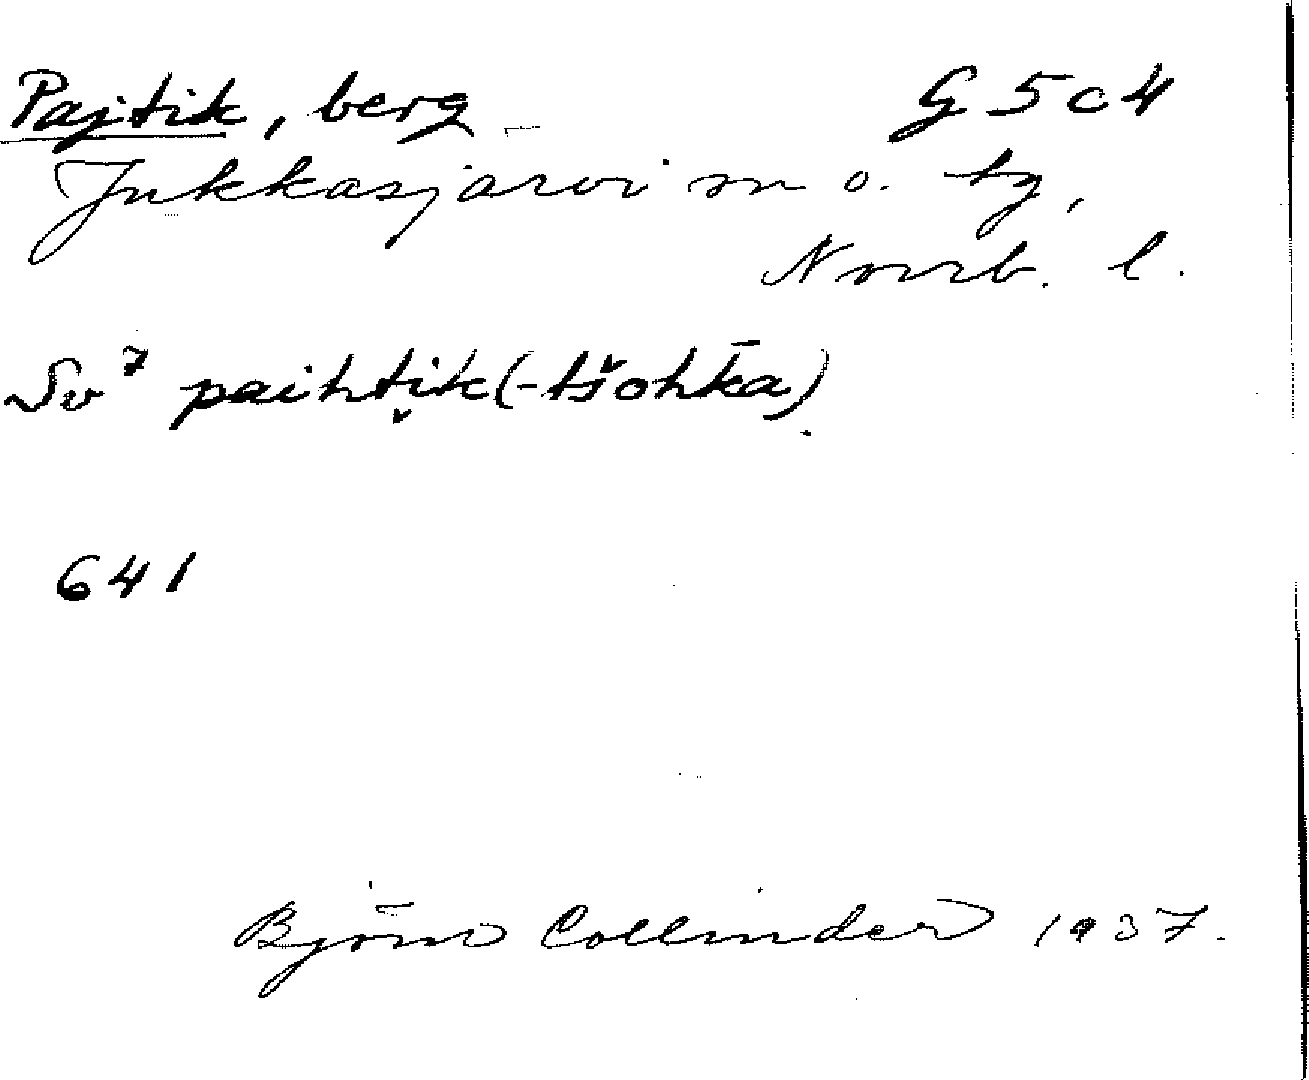 Pajtik, berg G 5 c 4
Jukkasjärvi sn o. tg,
Norrb. l.
Sv⁷ paiht̬ik(-tšohk̄a)
641
Björn Collinder 1937.